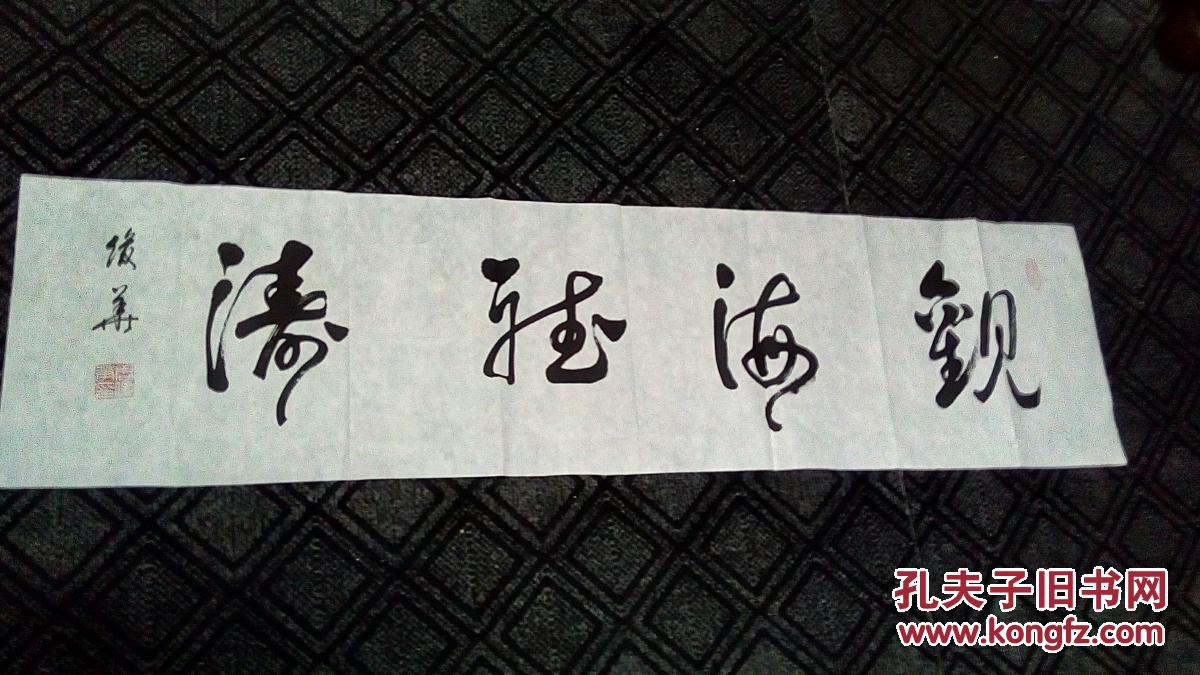 觀海聽濤
俊華
孔夫子旧书网
www.kongfz.com